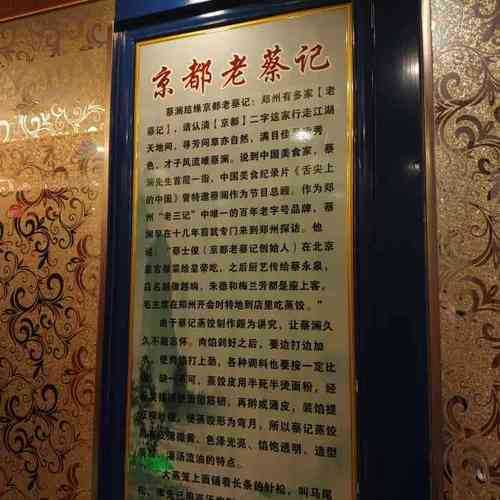 京都老蔡记
蔡澜结缘京都老蔡记：郑州有多家【老
蔡记】，请认清【京都】二字这家行走江湖
天地间，寻芳问草亦自然，满目佳
色，才子风流唯蔡澜。说到中国美食家，蔡
澜先生首屈一指，中国美食纪录片《舌尖上
的中国》曾特邀蔡澜作为节目总顾。作为郑
州“老三记”中唯一的百年老字号品牌，蔡
澜早在十几年前就专门来到郑州探访。他
说，“蔡士俊（京都老蔡记创始人）在北京
皇宫御菜给皇帝吃，之后厨艺传给蔡永泉，
且名越做越响，朱德和梅兰芳都是座上客，
毛主席在郑州开会时特地到店里吃蒸饺。”
由于蔡记蒸饺制作颇为讲究，让蔡澜久
久不能忘怀。肉馅剁好之后，要边打边加
水，使肉馅打上劲，各种调料也要按一定比
例，缺一不可，蒸饺皮用半死半烫面粉，经
面团筋韧，再擀成薄皮，装馅提
使蒸饺形为弯月，所以蔡记蒸饺
、色泽光亮、馅饱透明、造型
灌汤流油的特点。
大蒸笼上面铺着长条的针松，叫马尾
松，